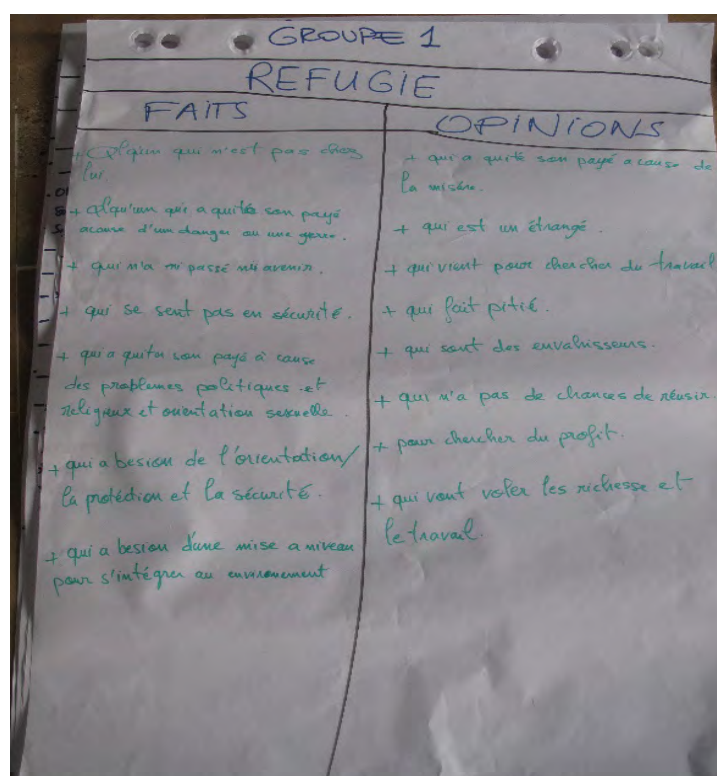 GROUPE 1
REFUGIE
FAITS
+ Qlqun qui n'est pas chez
lui.
+ qlqu'un qui a quités son payé
acause d'un danger ou une gerre.
+ qui n'a ni passé ni avenir.
+ qui se sent pas en sécurité.
+ qui a quitu son payé à cause
des problemes politiques et
religieux et orientation sexuelle.
+ qui a besion de l'orientation/
la protéction et la sécurité.
+ qui a besion d'une mise a niveau
pour s'intégrer au environement
OPINIONS
+ qui a quité son payé a cause de
la misére.
+ qui est un étrangé.
+ qui vient pour chercher du travail
+ qui fait pitié.
+ qui sont des envahisseurs.
+ qui n'a pas de chances de réusir.
+ pour chercher du profit.
+ qui vont voler les richesse et
le travail.